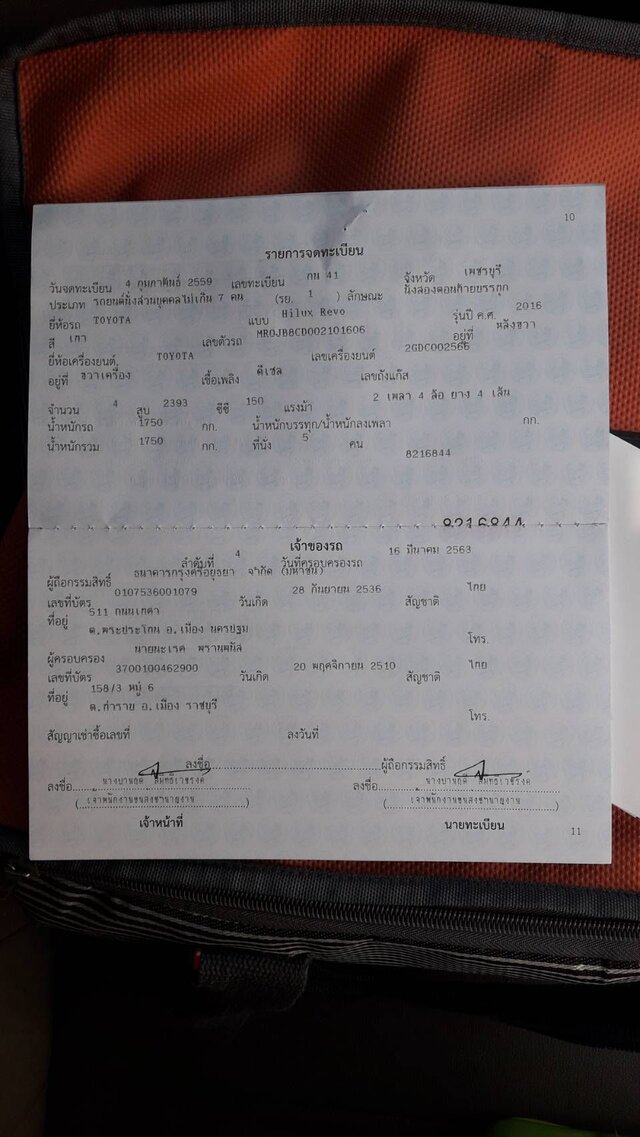 10
รายการจดทะเบียน
วันจดทะเบียน 4 กุมภาพันธ์ 2559 เลขทะเบียน กน 41 จังหวัด เพชรบุรี
ประเภท รถยนต์นั่งส่วนบุคคลไม่เกิน 7 คน (รย. 1 ) ลักษณะ นั่งสองตอนท้ายบรรทุก
ยี่ห้อรถ TOYOTA แบบ Hilux Revo รุ่นปี ค.ศ. 2016
สี เทา เลขตัวรถ MR0JB8CD002101606 อยู่ที่ หลังขวา
ยี่ห้อเครื่องยนต์ TOYOTA เลขเครื่องยนต์ 2GDC002566
อยู่ที่ ขวาเครื่อง เชื้อเพลิง ดีเซล เลขถังแก๊ส
จำนวน 4 สูบ 2393 ซีซี 150 แรงม้า 2 เพลา 4 ล้อ ยาง 4 เส้น
น้ำหนักรถ 1750 กก. น้ำหนักบรรทุก/น้ำหนักลงเพลา กก.
น้ำหนักรวม 1750 กก. ที่นั่ง 5 คน
8216844
8216844
เจ้าของรถ
ลำดับที่ 4 วันที่ครอบครองรถ 16 มีนาคม 2563
ผู้ถือกรรมสิทธิ์ ธนาคารกรุงศรีอยุธยา จำกัด (มหาชน)
เลขที่บัตร 0107536001079 วันเกิด 28 กันยายน 2536 สัญชาติ ไทย
ที่อยู่ 511 ถนนเทศา
ต.พระประโทน อ.เมือง นครปฐม
โทร.
ผู้ครอบครอง นายนะเรศ
เลขที่บัตร 3700100462900 วันเกิด 20 พฤศจิกายน 2510 สัญชาติ ไทย
ที่อยู่ 158/3 หมู่ 6
ต.ท่าราบ อ.เมือง ราชบุรี
โทร.
สัญญาเช่าซื้อเลขที่ ลงวันที่
ลงชื่อ ผู้ถือกรรมสิทธิ์
ลงชื่อ ลงชื่อ
(เจ้าพนักงานขนส่งชำนาญงาน) (เจ้าพนักงานขนส่งชำนาญงาน)
เจ้าหน้าที่ นายทะเบียน
11